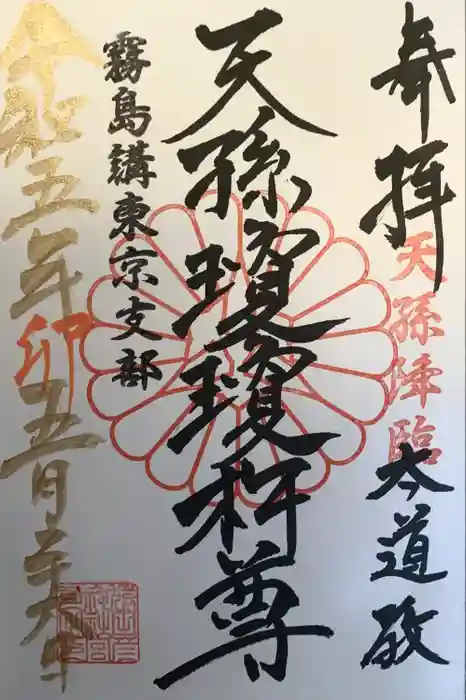 奉拝
天孫降臨
道
天孫瓊瓊杵尊
霧島講東京支部
令和五年卯五月